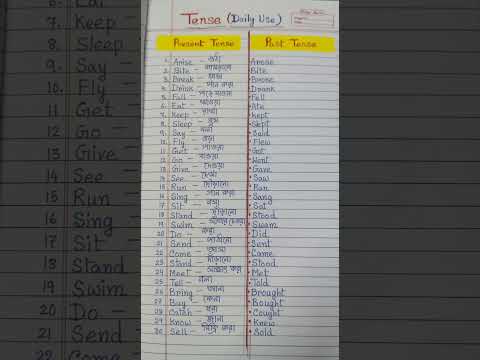 Tense (Daily Use)
Present Tense
Past Tense
1. Arise - ওঠা Arose
2. Bite - কামড়ানো Bite
3. Break - ভাঙ্গা Broke
4. Drink - পান করা Drank
5. Fall - পড়ে যাওয়া Fell
6. Eat - খাওয়া Ate
7. Keep - রাখা Kept
8. Sleep - ঘুম Slept
9. Say - বলা Said
10. Fly - ওড়া Flew
11. Get - পাওয়া Got
12. Go - যাওয়া Went
13. Give - দেওয়া Gave
14. See - দেখা Saw
15. Run - দৌড়ানো Ran
16. Sing - গান করা Sang
17. Sit - বসা Sat
18. Stand - দাঁড়ানো Stood
19. Swim - সাঁতার Swam
20. Do - করা Did
21. Send - পাঠানো Sent
22. Come - আসা Came
23. Stand - দাঁড়ানো Stood
24. Meet - করা Met
25. Tell - বলা Told
26. Bring - আনা Brought
27. Buy - কেনা Bought
28. Catch - ধরা Caught
29. Know - জানা Knew
30. Sell - বিক্রি করা Sold